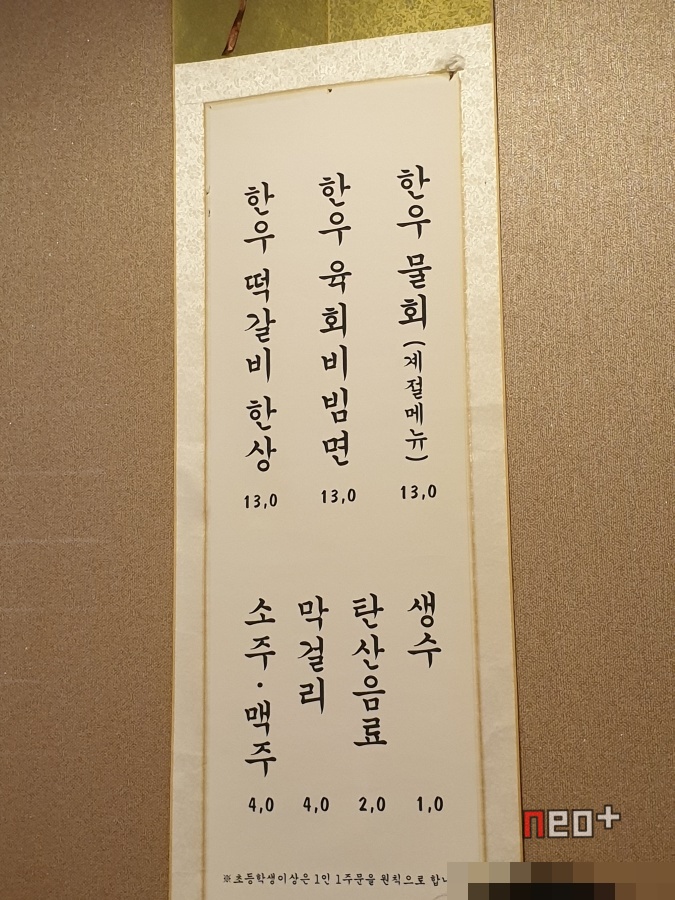 한우 물회(계절메뉴)
13,0
한우 육회비빔면
13,0
한우 떡갈비 한상
13,0
생수
1,0
탄산음료
2,0
막걸리
4,0
소주·맥주
4,0
※초등학생이상은 1인 1주문을 원칙으로
neo+